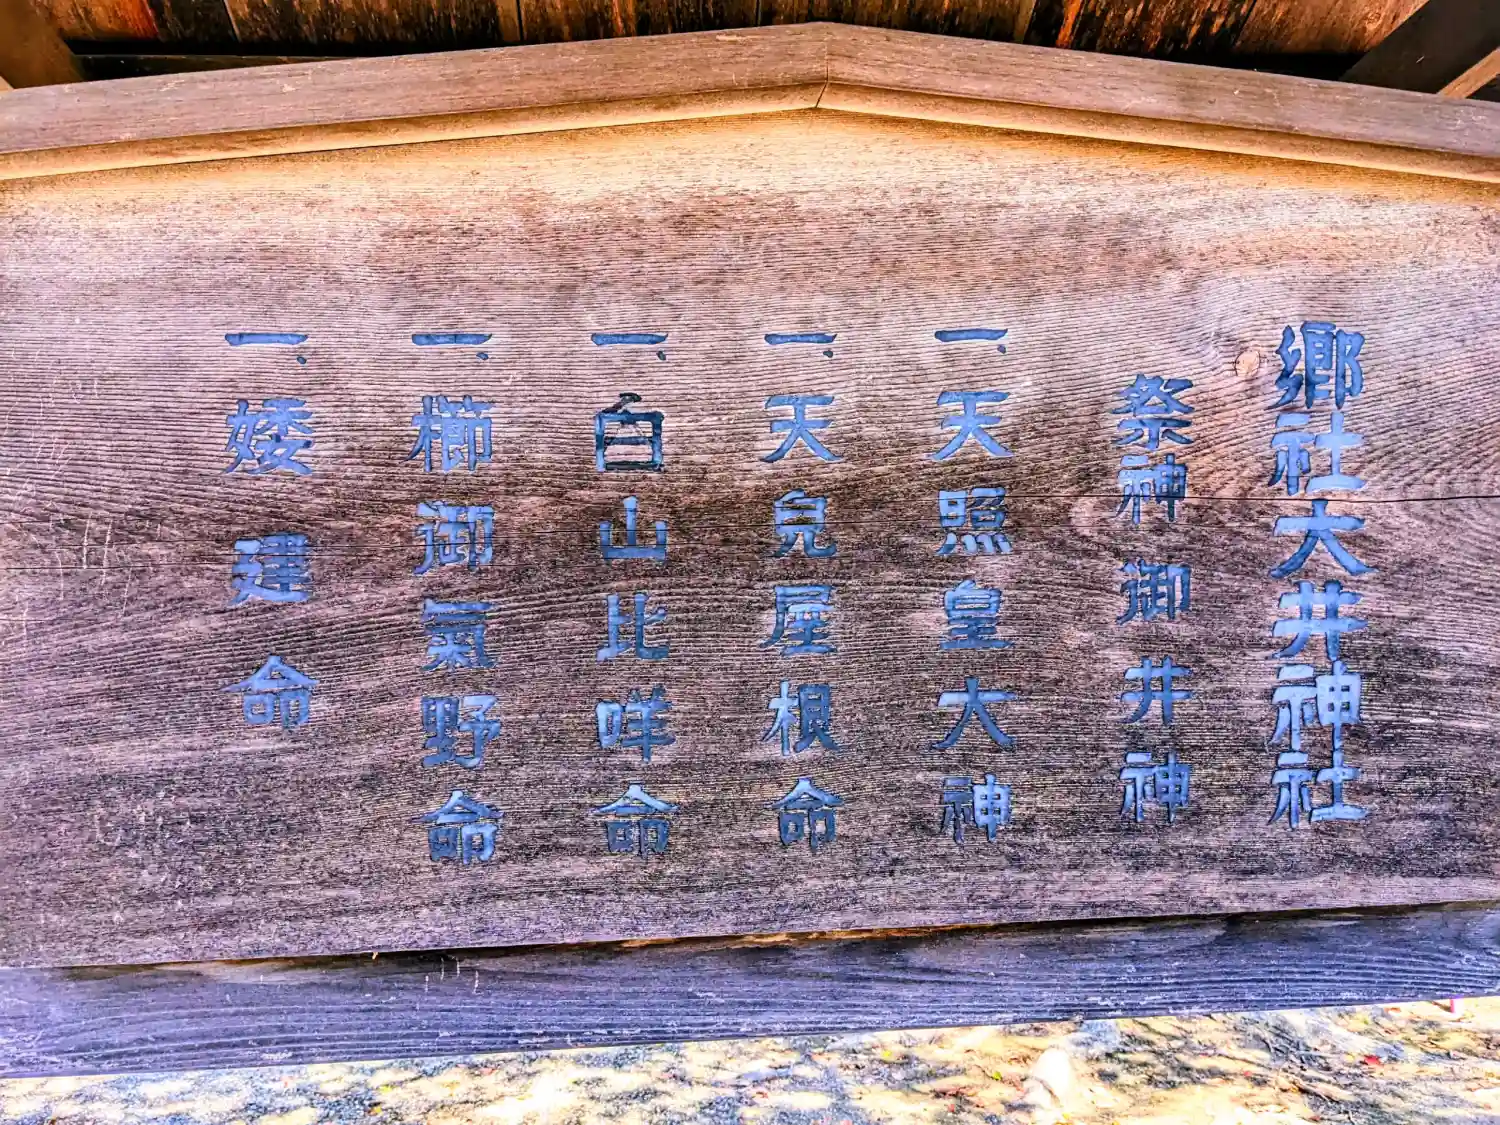 郷社大井神社
祭神御井神
一、天照皇大神
一、天兒屋根命
一、白山比咩命
一、櫛御氣野命
一、矮建命